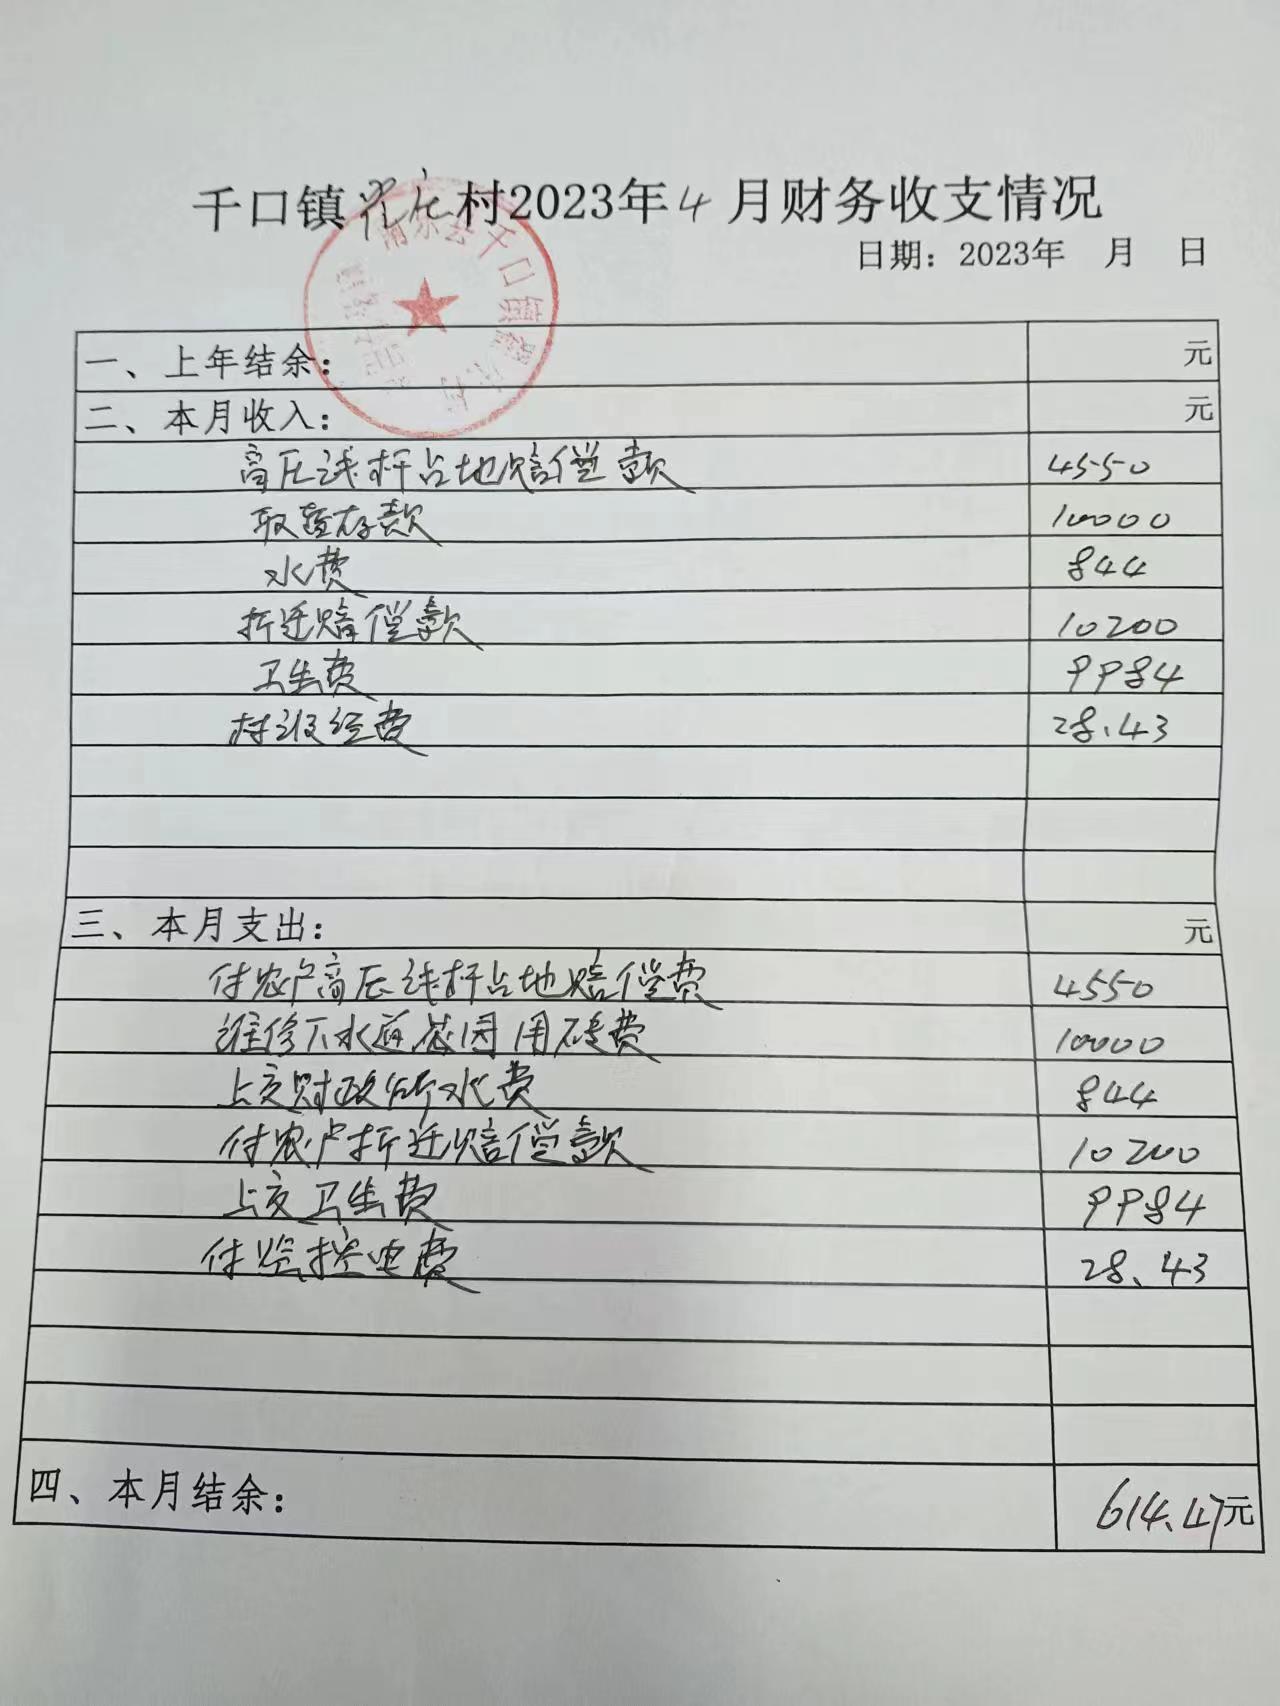 千口镇翟庄村2023年4月财务收支情况
日期：2023年 月 日
一、上年结余： 元
二、本月收入： 元
高压线杆占地赔偿款 4550
取暂存款 10000
水费 844
折迁赔偿款 10200
卫生费 9984
村级经费 28.43
三、本月支出： 元
付农户高压线杆占地赔偿费 4550
维修下水道花园用砖费 10000
上交财政所水费 844
付农户折迁赔偿款 10200
上交卫生费 9984
付监控电费 28.43
四、本月结余： 614.47元